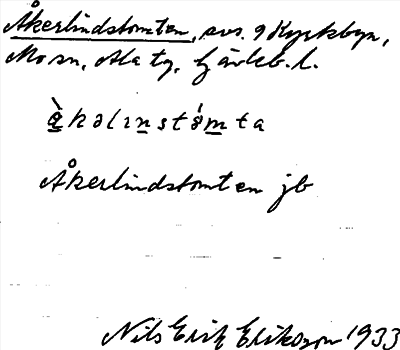 Åkerlindstomten, svs. 9 Kyrkbyn,
Mo sn, Ala tg, Gävleb. l.
å̀kəlɪnstǻmta
Åkerlindstomten jb
Nils Erik Eriksson 1933